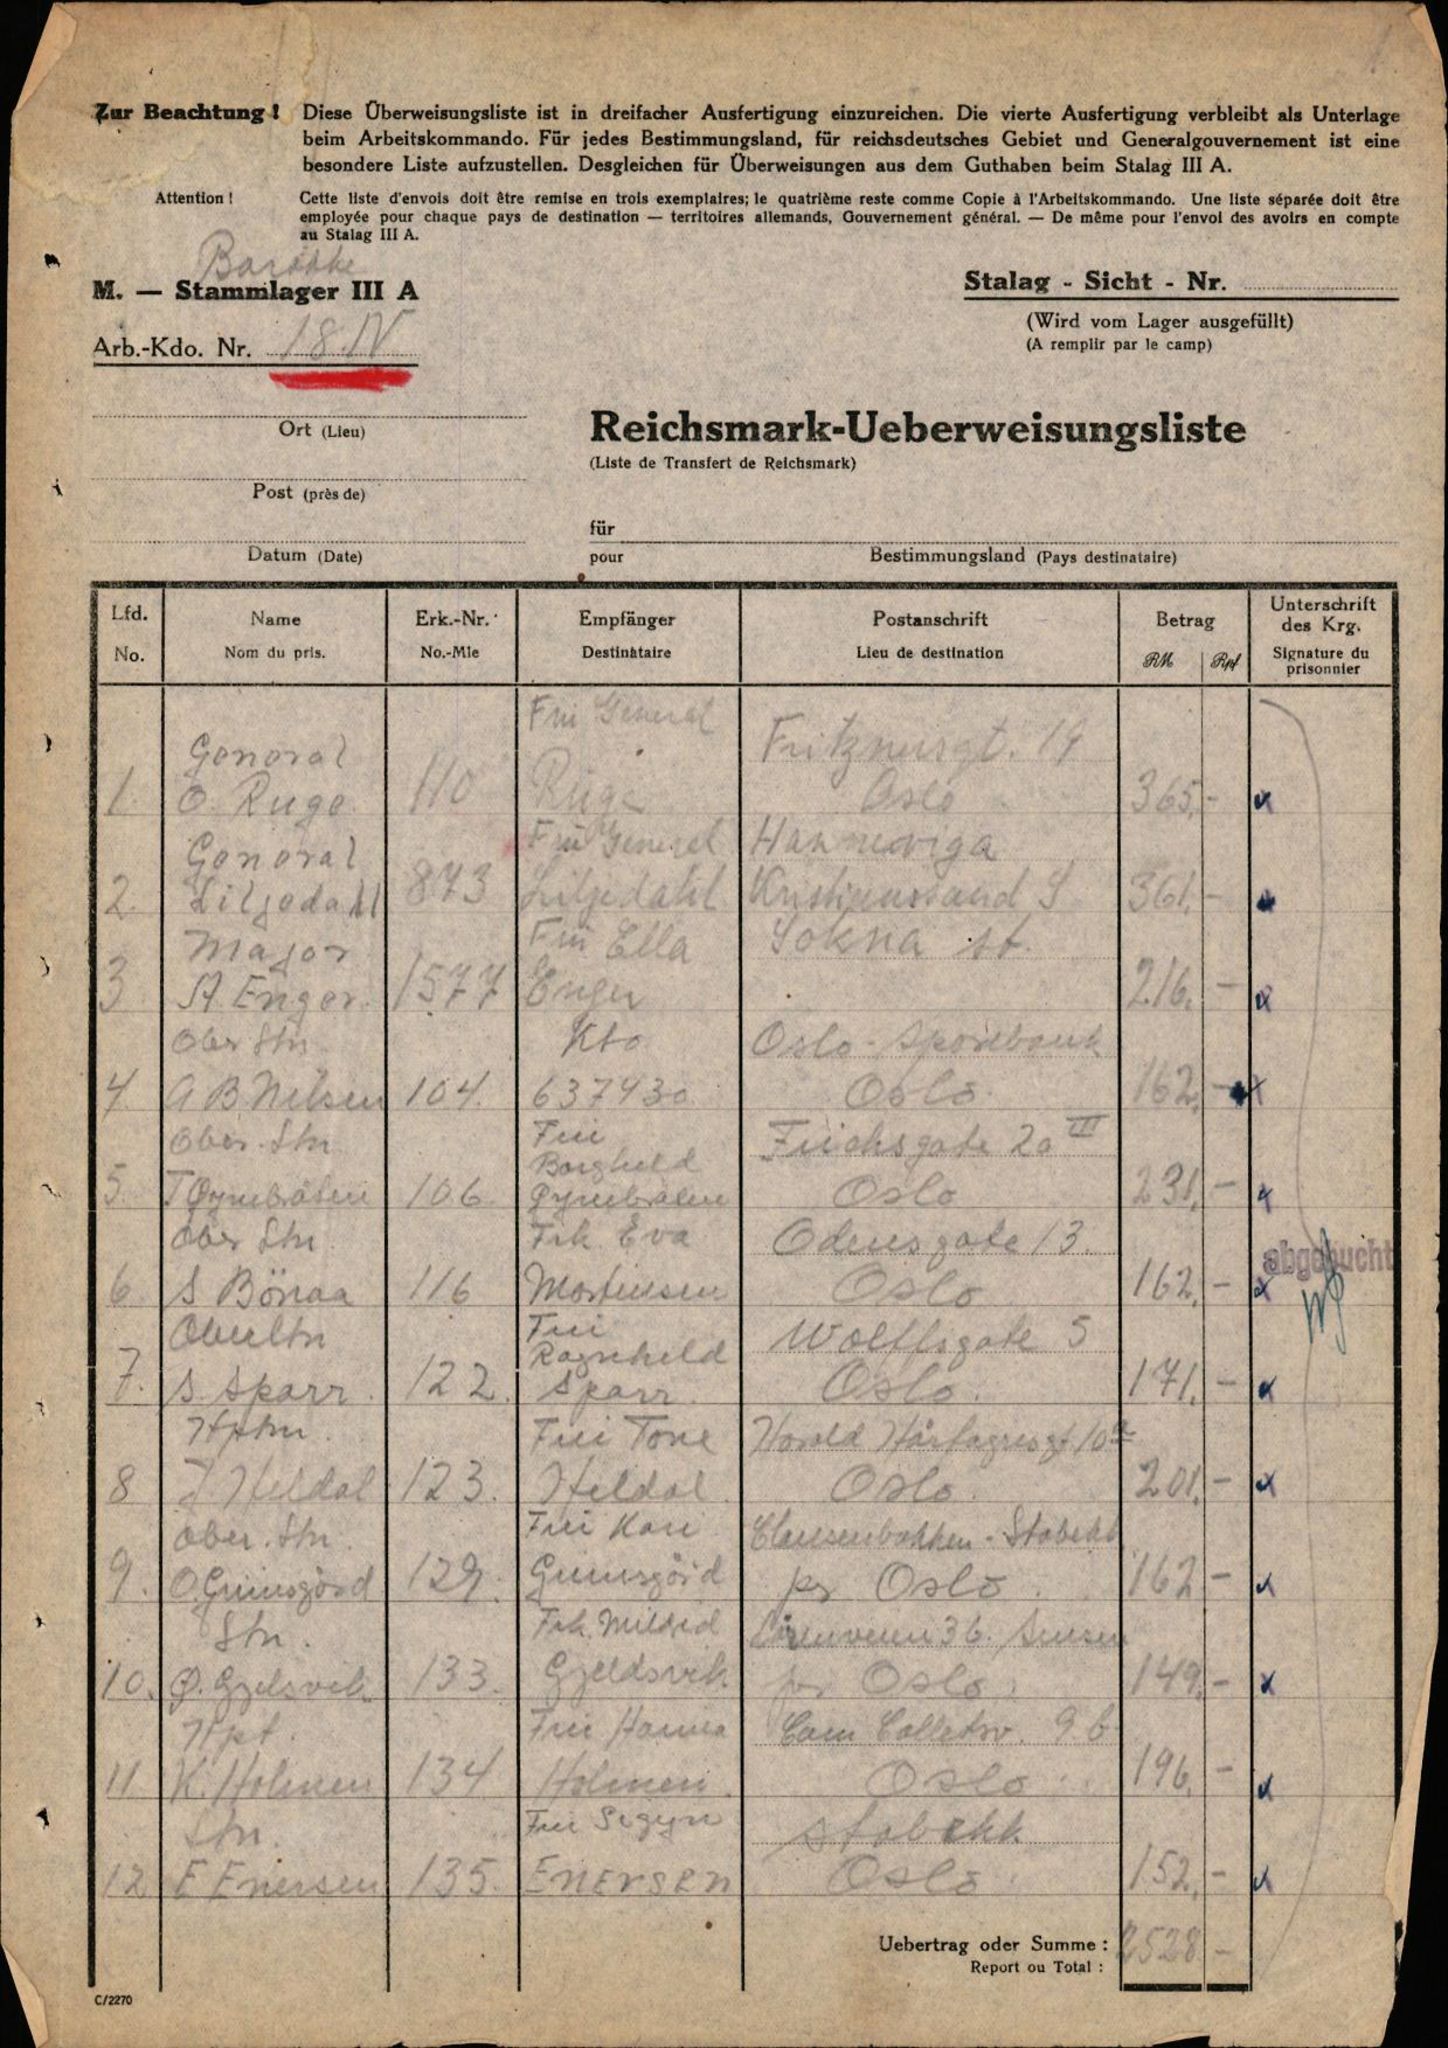 Zur Beachtung! Diese Überweisungsliste ist in dreifacher Ausfertigung einzureichen. Die vierte Ausfertigung verbleibt als Unterlage
beim Arbeitskommando. Für jedes Bestimmungsland, für reichsdeutsches Gebiet und Generalgouvernement ist eine
besondere Liste aufzustellen. Desgleichen für Überweisungen aus dem Guthaben beim Stalag III A.
Attention! Cette liste d'envois doit être remise en trois exemplaires; le quatrième reste comme Copie à l'Arbeitskommando. Une liste séparée doit être
employée pour chaque pays de destination — territoires allemands, Gouvernement général. — De même pour l'envoi des avoirs en compte
au Stalag III A.
M. — Stammlager III A
Stalag - Sicht - Nr.
(Wird vom Lager ausgefüllt)
(A remplir par le camp)
Arb.-Kdo. Nr. 18.IV
Ort (Lieu)
Reichsmark-Ueberweisungsliste
(Liste de Transfert de Reichsmark)
Post (près de)
für
pour
Datum (Date)
Bestimmungsland (Pays destinataire)
Lfd. Name Erk.-Nr. Empfänger Postanschrift Betrag Unterschrift des Krg.
No. Nom du pris. No.-Mle Destinataire Lieu de destination RM Rpf Signature du prisonnier
General Fru General Fritznersgt. 19
1. O. Ruge 110 Ruge Oslo 365,-
General Fru General
2. Liljedahl 873 Liljedahl Kristianssand S 361,-
Major Fru Ella Sokna st.
3 A. Enger 1577 Enger 216,-
Ober Ltn Kto Oslo Sparebank
4. A B Nilsen 104. 637930 Oslo 162,-
Ober. Ltn Fru Borghild
5. 106 Oslo 231,-
Ober Ltn Frk. Eva Odensgate 13.
6 S Bönaa 116 Mortensen Oslo 162,-
Oberltn Fru Ragnhild Wolffsgate 5
7. S. Sparr. 122. Sparr. Oslo. 171,-
Hptm. Fru Tove Harald Hårfagresgt 10
8 J. Heldal 123. Heldal. Oslo. 201,-
Ober. Ltn Fru Kari Stabekk
9. O. Grimsgård 129. Grimsgård pr Oslo. 162 -
Ltn. Frk. Mildrid
10. Ø. Gjelsvik 133. Gjeldsvik pr Oslo. 149,-
Hpt. Fru Hanna Cam Colletsv. 9 b
11. K. Holmen 134 Holmen Oslo 196,-
Ltn. Fru Sigyn Stabekk
12 E Enersen 135. Enersen Oslo 152,-
abgebucht
Uebertrag oder Summe: 2528 -
Report ou Total:
C/2270